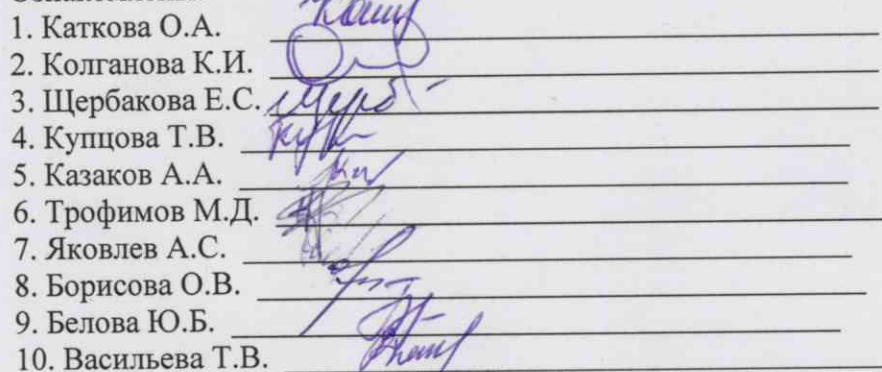 1. Каткова О.А.
2. Колганова К.И.
3. Щербакова Е.С.
4. Купцова Т.В.
5. Казаков А.А.
6. Трофимов М.Д.
7. Яковлев А.С.
8. Борисова О.В.
9. Белова Ю.Б.
10. Васильева Т.В.